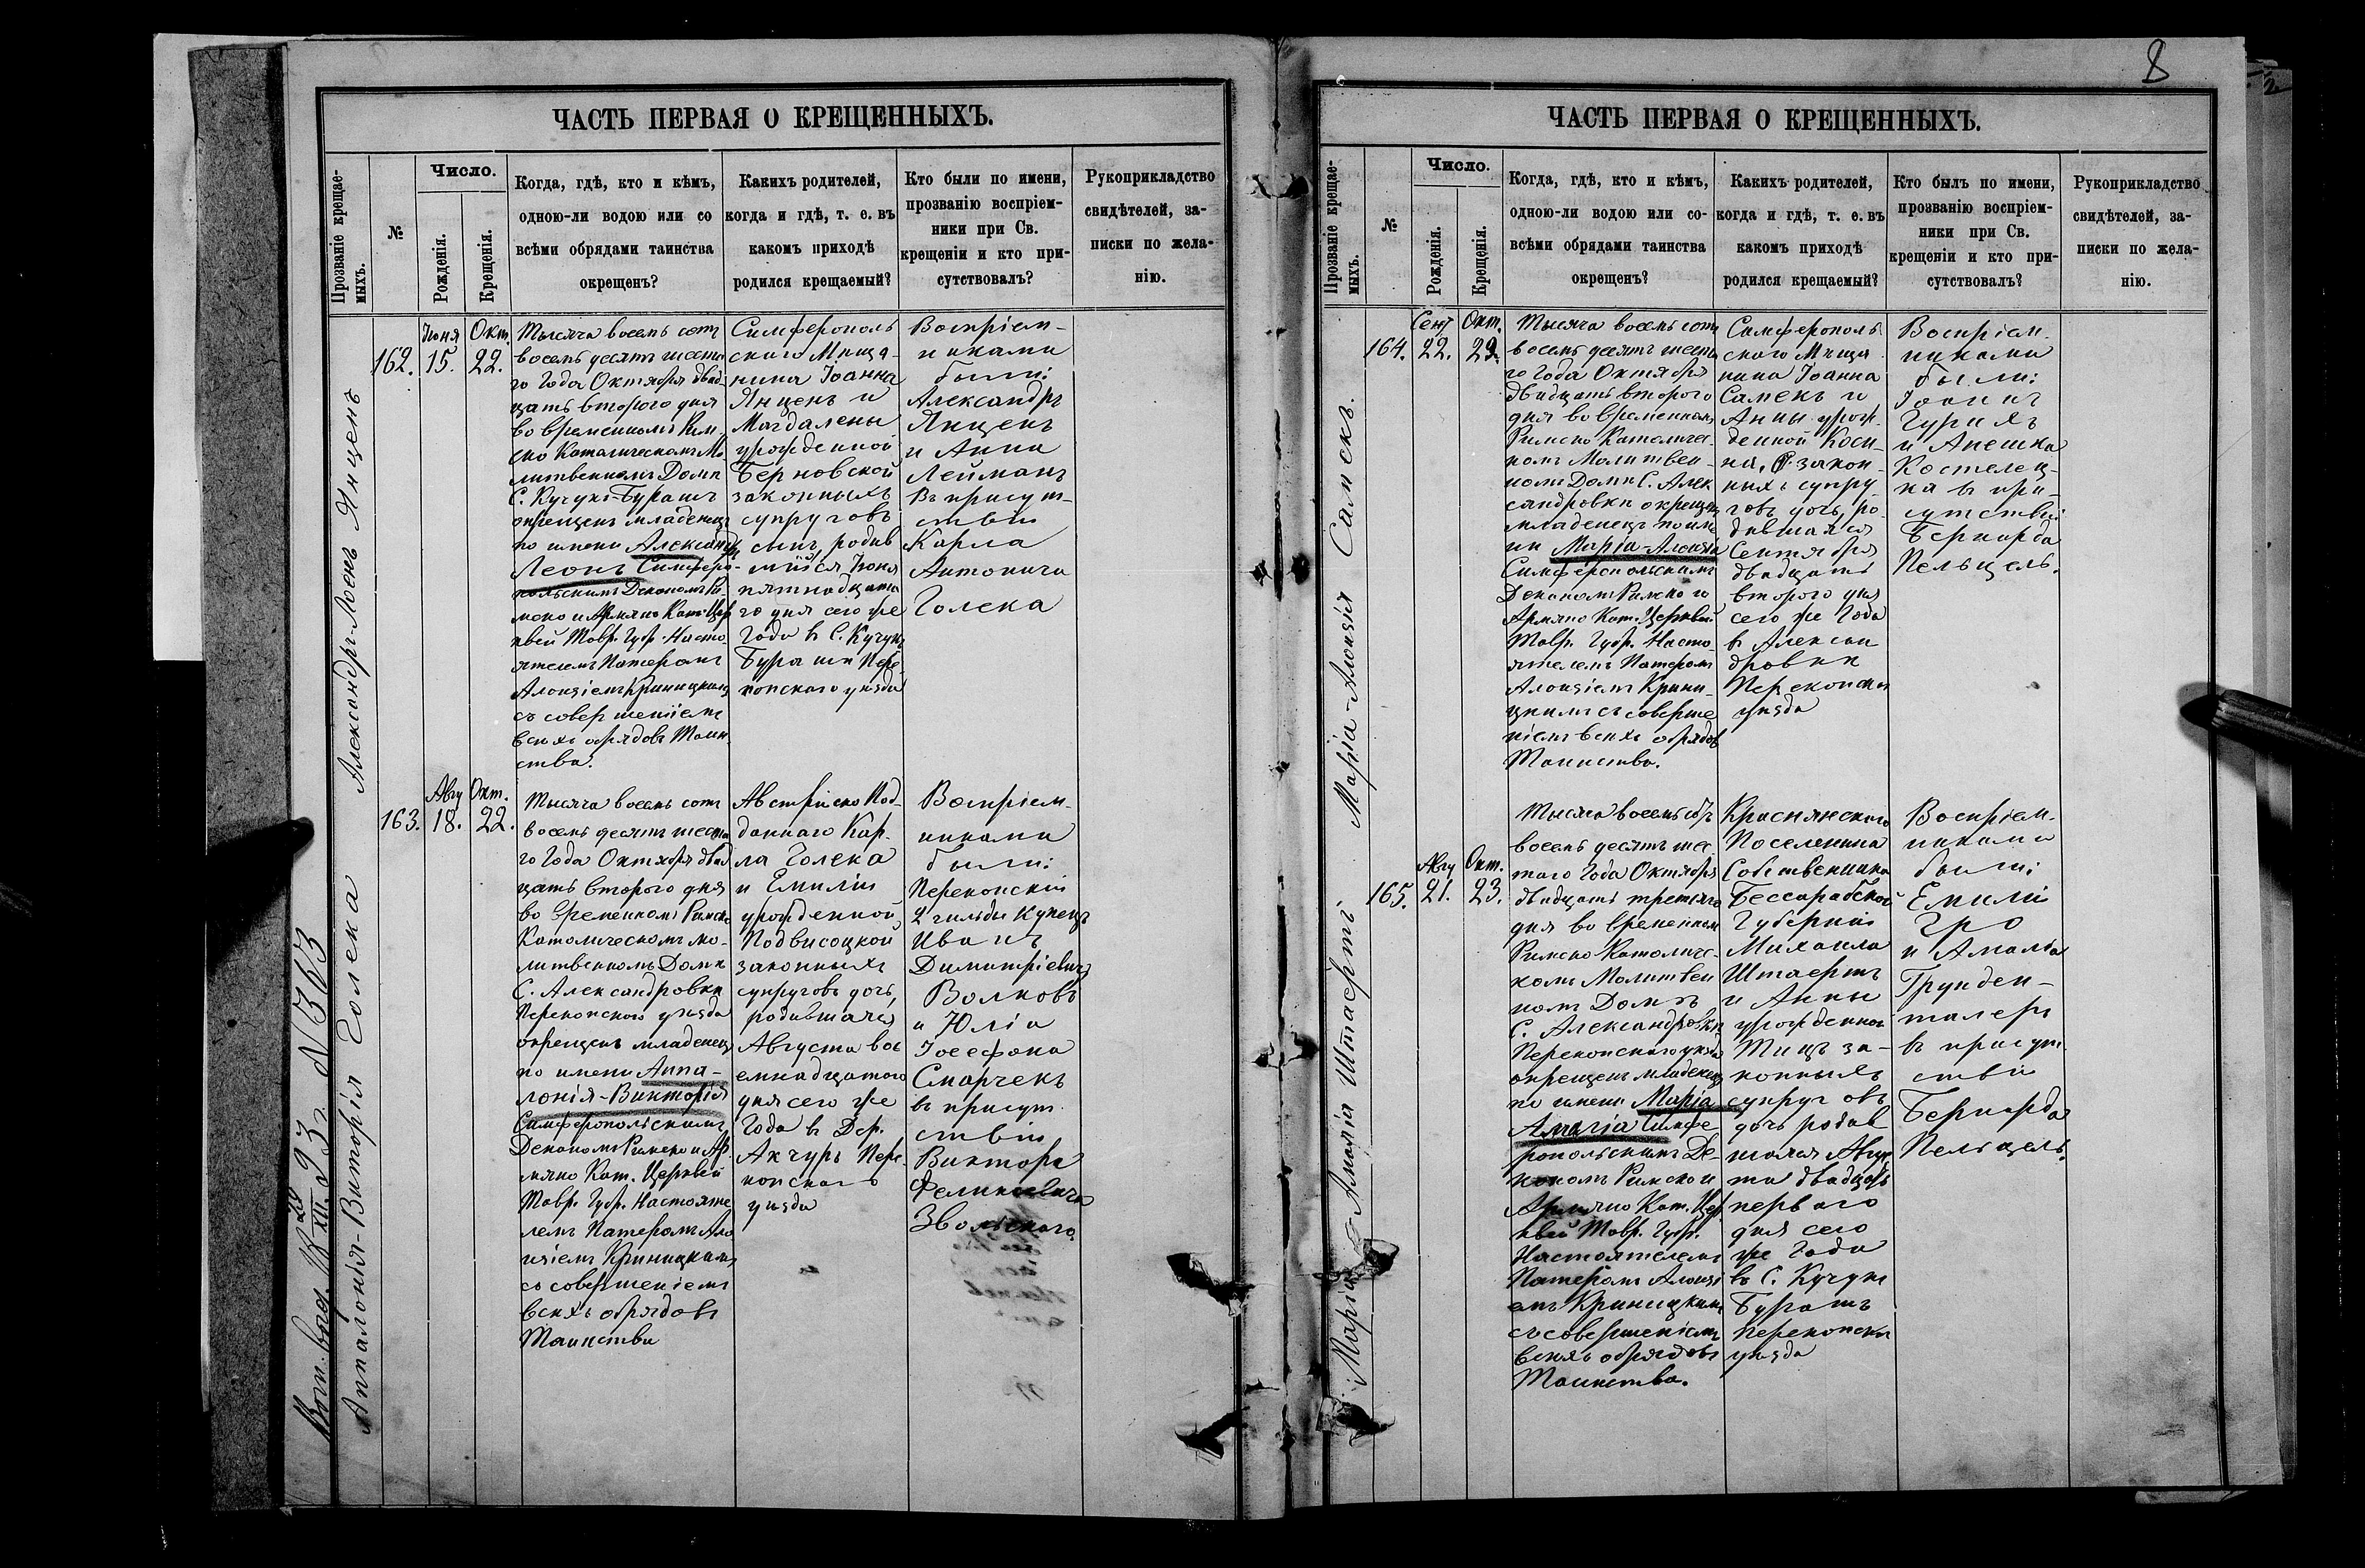 8
ЧАСТЬ ПЕРВАЯ О КРЕЩЕННЫХЪ.
Прозваніе крещае-
мыхъ.
№
Число.
Рожденія.
Крещенія.
Когда, гдѣ, кто и кѣмъ,
одною-ли водою или со
всѣми обрядами таинства
окрещенъ?
Какихъ родителей,
когда и гдѣ, т. е. въ
какомъ приходѣ
родился крещаемый?
Кто были по имени,
прозванію воспріем-
ники при Св.
крещеніи и кто при-
сутствовалъ?
Рукоприкладство
свидѣтелей, за-
писки по жела-
нію.
Александръ-Леонъ Янценъ
162.
Іюня
15.
Окт.
22.
Тысяча восемь сотъ
восемь десятъ шеста
го Года Октября двад
цать второго дня
во временномъ Рим
ско Католическомъ Мо
литвенномъ Домѣ
С. Кучукъ-Бурашъ
окрещенъ младенецъ
по имени Александръ
Леонъ Симферо-
польскимъ Деканомъ Ри
мско и Армяно Кат. Цер
квей Тавр. Губ. Насто
ятелемъ Патеромъ
Алоизіемъ Криницкимъ
съ совершеніемъ
всехъ обрядовъ Таин
ства.
Симферополь
скаго Мѣща-
нина Іоанна
Янценъ и
Магдалены
урожденной
Берновской
законныхъ
супруговъ
сынъ, родив
шійся Іюня
пятнадцата
го дня сего же
Года въ С. Кучукъ
Бурашѣ Пере
копскаго уѣзда
Воспріем-
никами
были:
Александръ
Янценъ
и Анна
Лейманъ
Въ присут-
ствіи
Карла
Антонича
Голека
Аппалонія-Викторія Голека
163.
Авгу
18.
Окт.
22.
Тысяча восемь сотъ
восемь десятъ шеста
го Года Октября двад
цать второго дня
во временномъ Римско
Католическомъ мо-
литвенномъ Домѣ
С. Александровки
Перекопского уѣзда
окрещенъ младенецъ
по имени Аппа-
лонія-Викторія
Симферопольскимъ
Деканомъ Римско и Ар
мяно Кат. Церквей
Тавр. Губ. Настояте
лемъ Патеромъ Ало
изіемъ Криницкимъ
съ совершеніемъ
всехъ обрядовъ
Таинства
Австрійско Под-
даннаго Кар-
ла Голека
и Емиліи
урожденной
Подвисоцкой
законныхъ
супруговъ дочь,
родившаяся
Августа вос
емнадцатого
дня сего же
Года въ Дер.
Акчуръ Пере
копскаго
уѣзда
Воспріем-
никами
были:
Перекопскій
2 гильды Купецъ
Иванъ
Димитріевичъ
Волковъ
и Юлія
Іосефона
Смарчекъ
въ присут
ствіи
Виктора
Феликсевича
Звольскаго
ЧАСТЬ ПЕРВАЯ О КРЕЩЕННЫХЪ.
Прозваніе крещае-
мыхъ.
№
Число.
Рожденія.
Крещенія.
Когда, гдѣ, кто и кѣмъ,
одною-ли водою или со-
всѣми обрядами таинства
окрещенъ?
Какихъ родителей,
когда и гдѣ, т. е. въ
какомъ приходѣ
родился крещаемый?
Кто былъ по имени,
прозванію воспріем-
ники при Св.
крещеніи и кто при-
сутствовалъ?
Рукоприкладство
свидѣтелей, за-
писки по жела-
нію.
Марія-Алоизія Самекъ.
164.
Сент
22.
Окт.
22.
Тысяча восемь сотъ
восемь десятъ шеста
го Года Октября
двадцать второго
дня во временномъ
Римско Католичес-
комъ Молитвен-
номъ Домѣ С. Алек
сандровки окрещенъ
младенецъ по име
ни Марія-Алоизія
Симферопольскимъ
Деканомъ Римско и
Армяно Кат. Церквей
Тавр. Губр. Насто-
ятелемъ Патеромъ
Алоизіемъ Крини-
цкимъ съ соверше
ніемъ всехъ обрядовъ
Таинства.
Симферополь
скаго Мѣща
нина Іоанна
Самекъ и
Анны урож-
денной Коси-
на, закон-
ныхъ супру
говъ дочь, ро-
дившаяся
Сентября
двадцать
второго дня
сего же Года
въ Алексан
дровки
Перекопска
уѣзда
Воспріем.
никами
были:
Іоанъ
Гурихъ
и Анешка
Костелец-
ка въ при-
сутствіи
Бернарда
Пельцель.
Марія-Амалія Штаертъ
165.
Авгу
21.
Окт.
23.
Тысяча восемь сотъ
восемь десятъ шес
таго Года Октября
двадцать третьяго
дня во временномъ
Римско Католиче-
комъ Молитвен
номъ Домѣ
С. Александровки
Перекопскаго уѣзда
окрещенъ младенецъ
по имени Марія
Амалія Симфе
ропольскимъ Де-
каномъ Римско и
Армяно Кат. Цер
квей Тавр. Губр.
Настоятелемъ
Патеромъ Алоизі
емъ Криницкимъ
съ совершеніемъ
всехъ обрядовъ
Таинства.
Краснянского
Поселенина
Собственника
Бессарабской
Губерніи
Михаила
Штаертъ
и Анны
урожденной
Тицъ за-
конныхъ
супруговъ
дочь родив
шаяся Авгус
та двадцать
первого
дня сего
же Года
въ С. Кучукъ
Бурашъ
Перекопска
уѣзда
Воспріем-
никами
были:
Емилій
Гро
и Амалія
Грунден-
талеръ
въ присут-
ствіи
Бернарда
Пельцель.